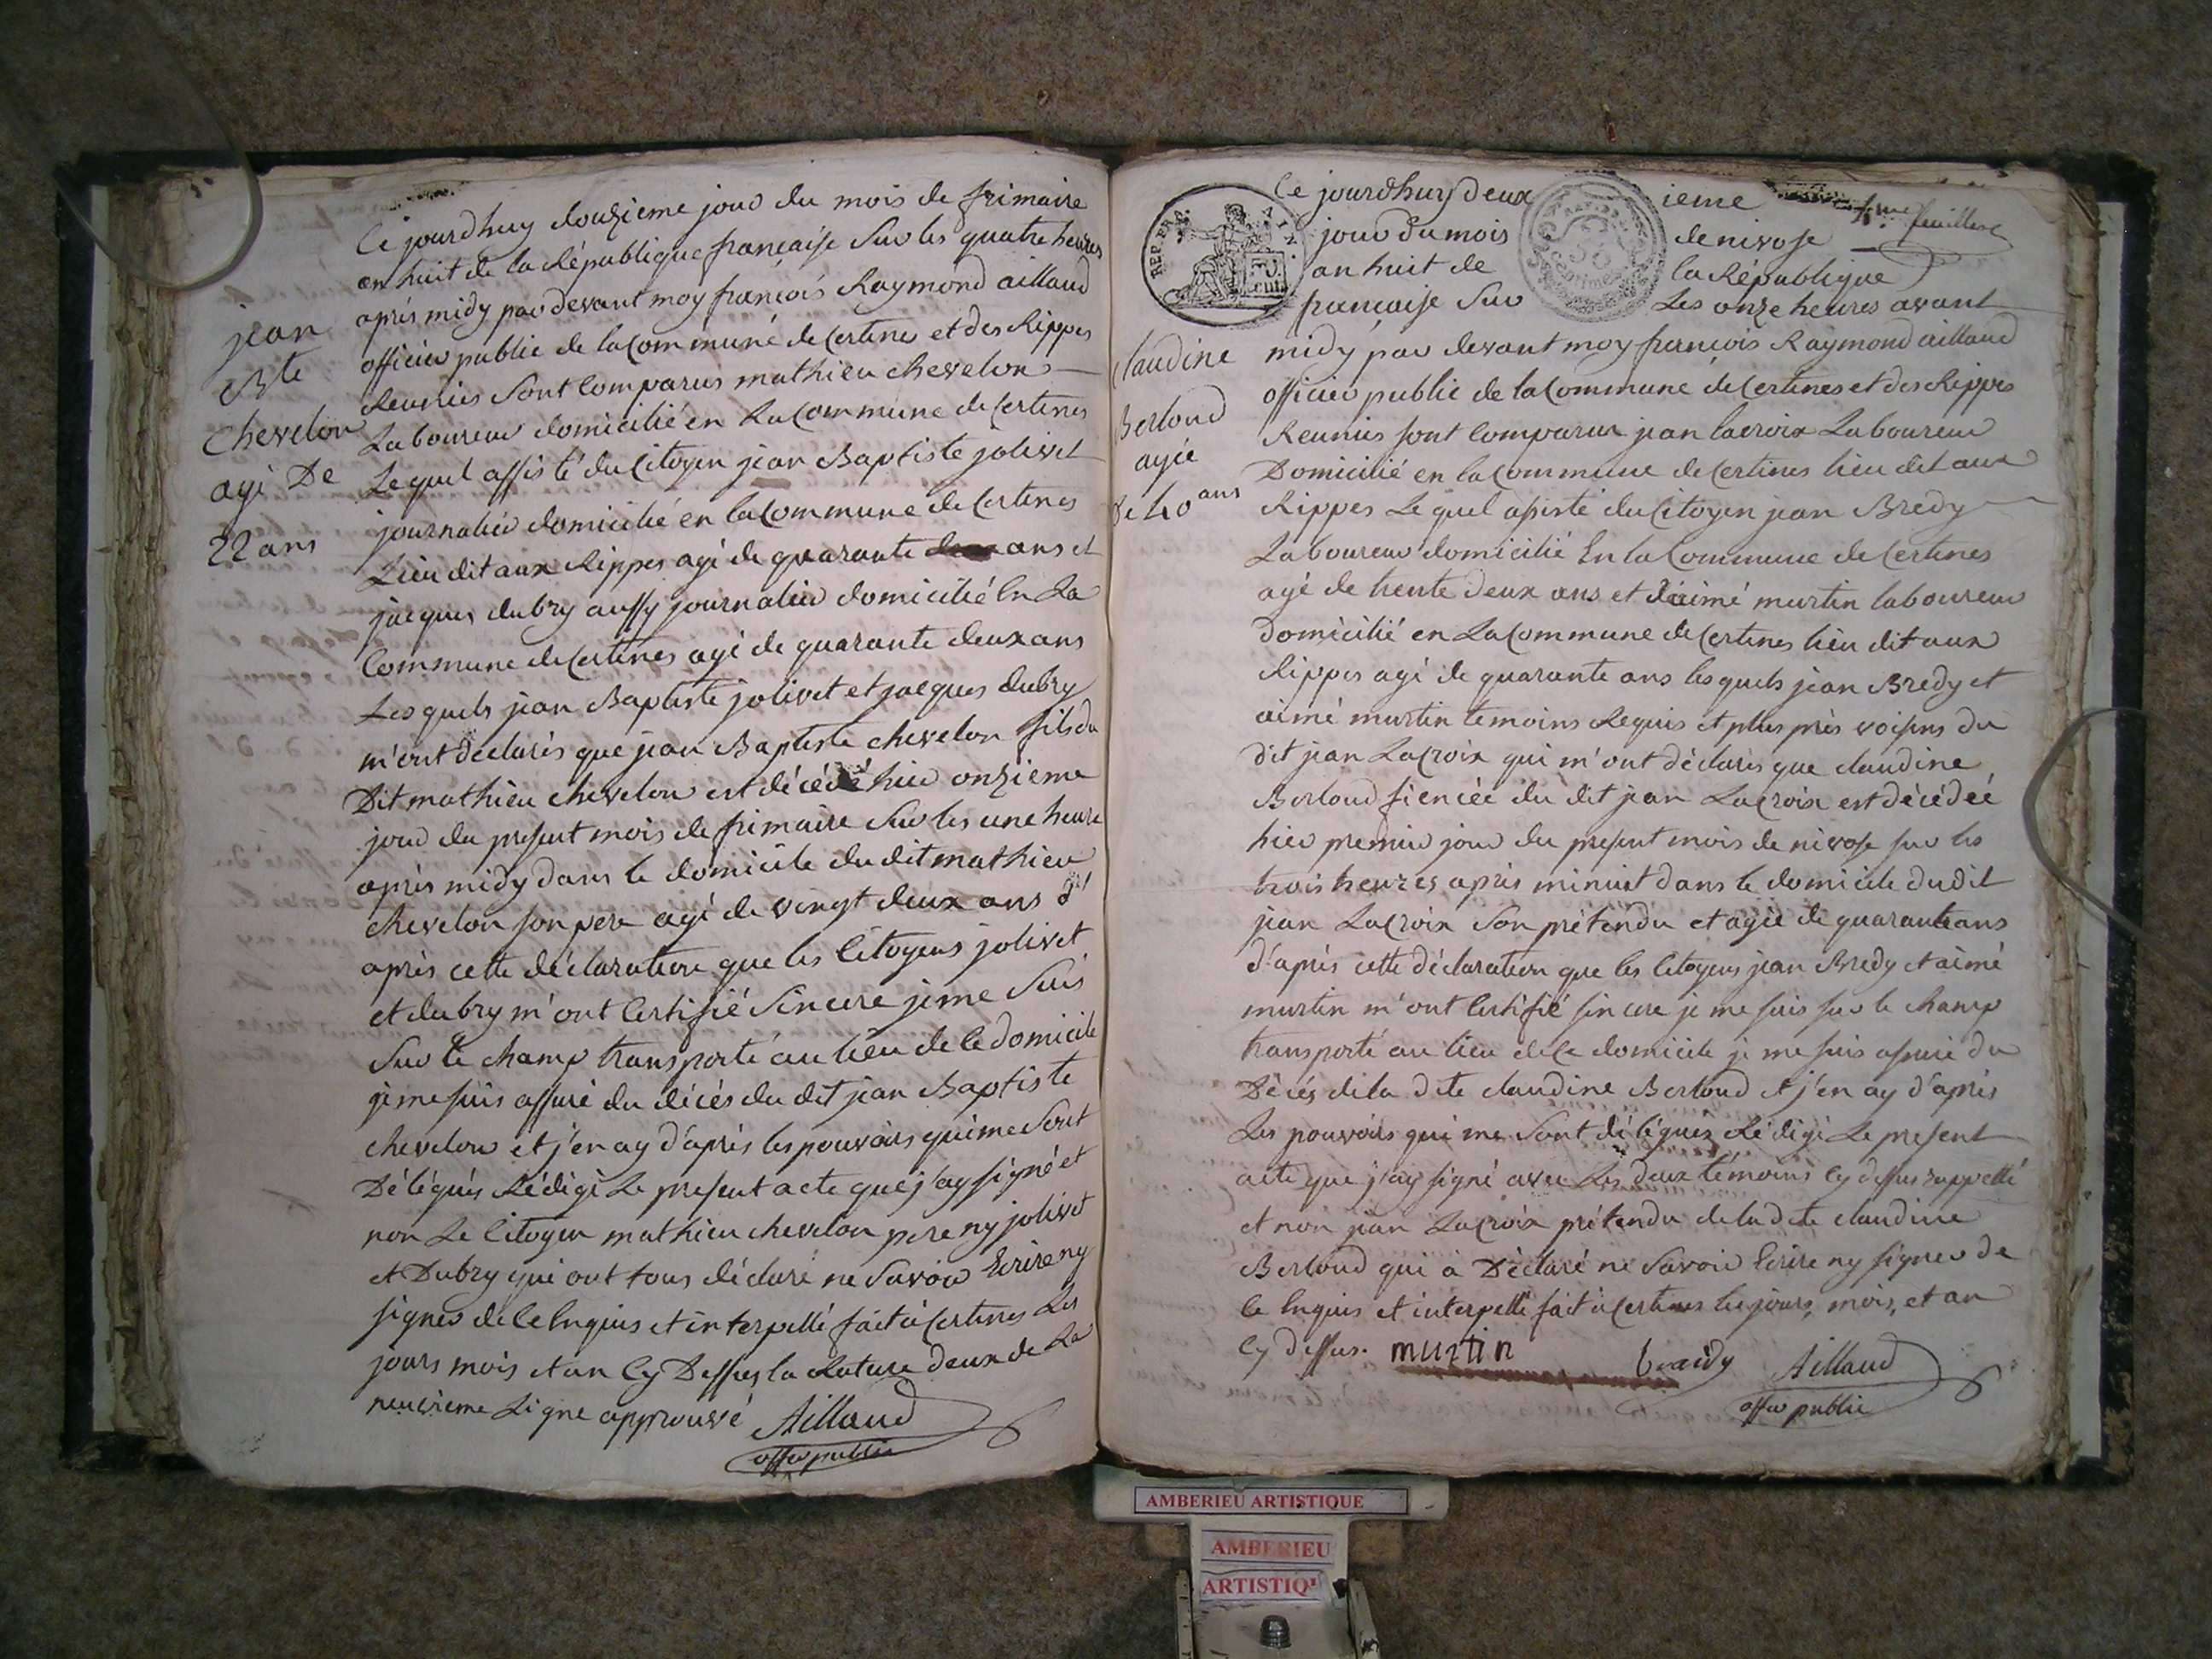 Ce jourd'huy douzieme jour du mois de frimaire
an huit de la République française Sur les quatre heures
après midy par devant moy francois Raymond aillaud
officier public de la Commune de Certines et des Rippes
Reunies Sont Comparus mathieu chevelon
Laboureur domicilié en La Commune de Certines
Lequel assisté du Citoyen jean Baptiste jolivet
journalier domicilié en la Commune de Certines
Lieu dit aux Rippes agé de quarante ans et
jacques dubry aussy journalier domicilié En La
Commune de Certines agé de quarante deux ans
Lesquels jean Baptiste jolivet et jacques dubry
m'ont déclarés que jean Baptiste chevelon fils du
Dit mathieu chevelon est décédé hier onzieme
jour du present mois de frimaire Sur les une heure
après midy dans le domicile du dit mathieu
chevelon son pere agé de vingt deux ans d'
après cette déclaration que les Citoyens jolivet
et dubry m'ont Certifié Sincere je me Suis
Sur le champ transporté au lieu de Ce domicile
je me suis assuré du décés du dit jean Baptiste
chevelon et j'en ay d'après les pouvoirs qui me Sont
Délégués Rédigé Le present acte que j'ay signé et
non Le Citoyen mathieu chevelon pere ny jolivet
et Dubry qui ont tous déclaré ne Savoir Ecrire ny
signer de Ce Enquis et interpellé fait à Certines Les
jours mois et an Cy Dessus la Rature deux de La
neuvieme Ligne approuvé Aillaud
offier public
jean
Bte
Chevelon
agé De
22 ans
Ce jourd'huy deuxieme
4me feuillet
jour du mois de nivose
an huit de la République
REP. FRA.
75 cent.
francaise Sur Les onze heures avant
midy par devant moy francois Raymond aillaud
officier public de la Commune de Certines et des Rippes
Reunies sont Comparus jean lacroix Laboureur
Domicilié en la Commune de Certines lieu dit aux
Rippes Lequel assisté du Citoyen jean Bredy
Laboureur domicilié En la Commune de Certines
agé de trente deux ans et aimé murtin laboureur
domicilié en La Commune de Certines lieu dit aux
Rippes agé de quarante ans lesquels jean Bredy et
aimé murtin temoins Requis et plus près voisins du
dit jean Lacroix qui m'ont déclarés que claudine
Berloud fiencée du dit jean Lacroix est décédée
hier premier jour du present mois de nivose sur les
trois heures après minuit dans le domicile dudit
jean Lacroix Son prétendu et agée de quarante ans
d'après cette déclaration que les Citoyens jean Bredy et aimé
murtin m'ont Certifié sincere je me suis sur le champ
transporté au lieu de Ce domicile je me suis assuré du
Décés de la dite claudine Berloud et j'en ay d'après
Les pouvoirs qui me Sont délégués Rédigé Le present
acte que j'ay signé avec Les deux témoins Cy dessus rappellé
et non jean Lacroix prétendu de la dite claudine
Berloud qui à Déclaré ne Savoir Ecrire ny signer de
Ce Enquis et interpellé fait à Certines les jours, mois, et an
Cy dessus. murtin braidy Aillaud
offier public
Claudine
Berloud
agée
de 40 ans
AMBERIEU ARTISTIQUE
AMBERIEU
ARTISTIQ